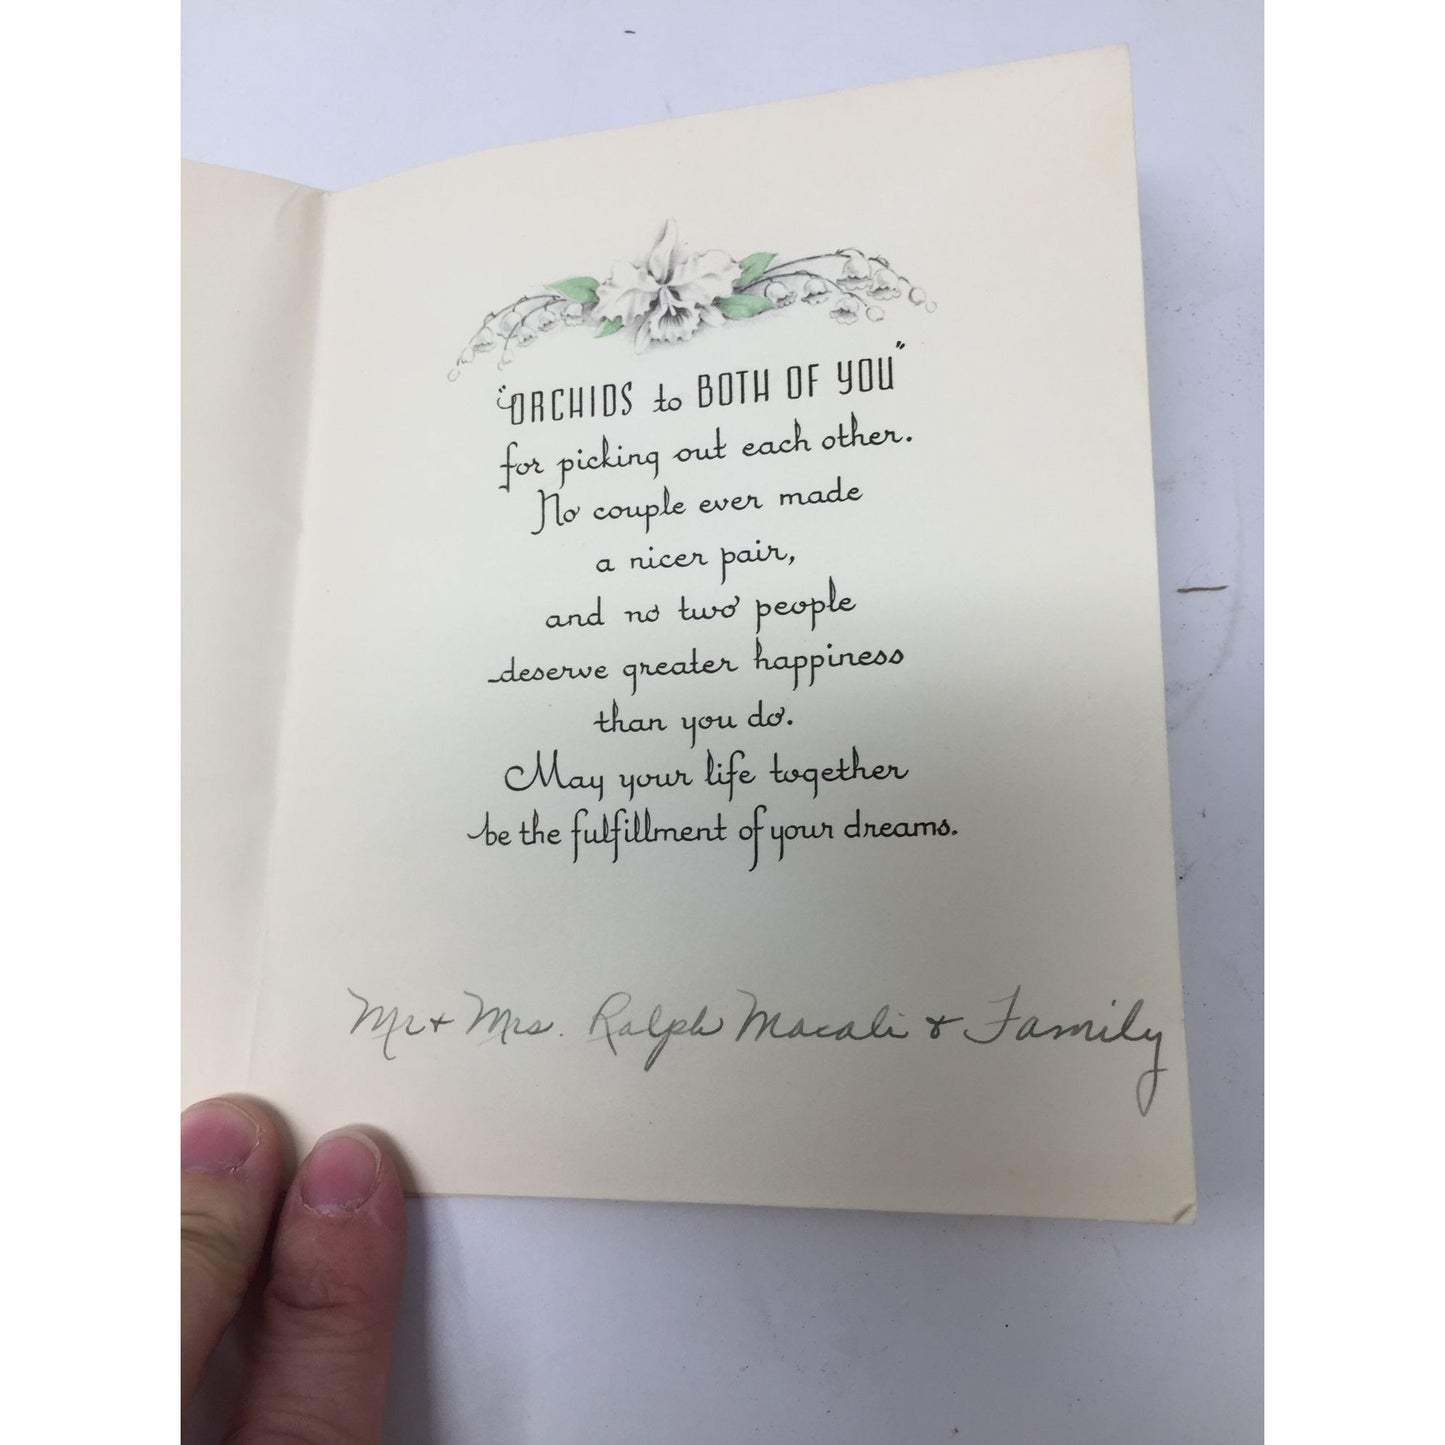 "ORCHIDS to BOTH OF YOU"
for picking out each other.
No couple ever made
a nicer pair,
and no two people
deserve greater happiness
than you do.
May your life together
be the fulfillment of your dreams.
Mr + Mrs. Ralph Macali + Family